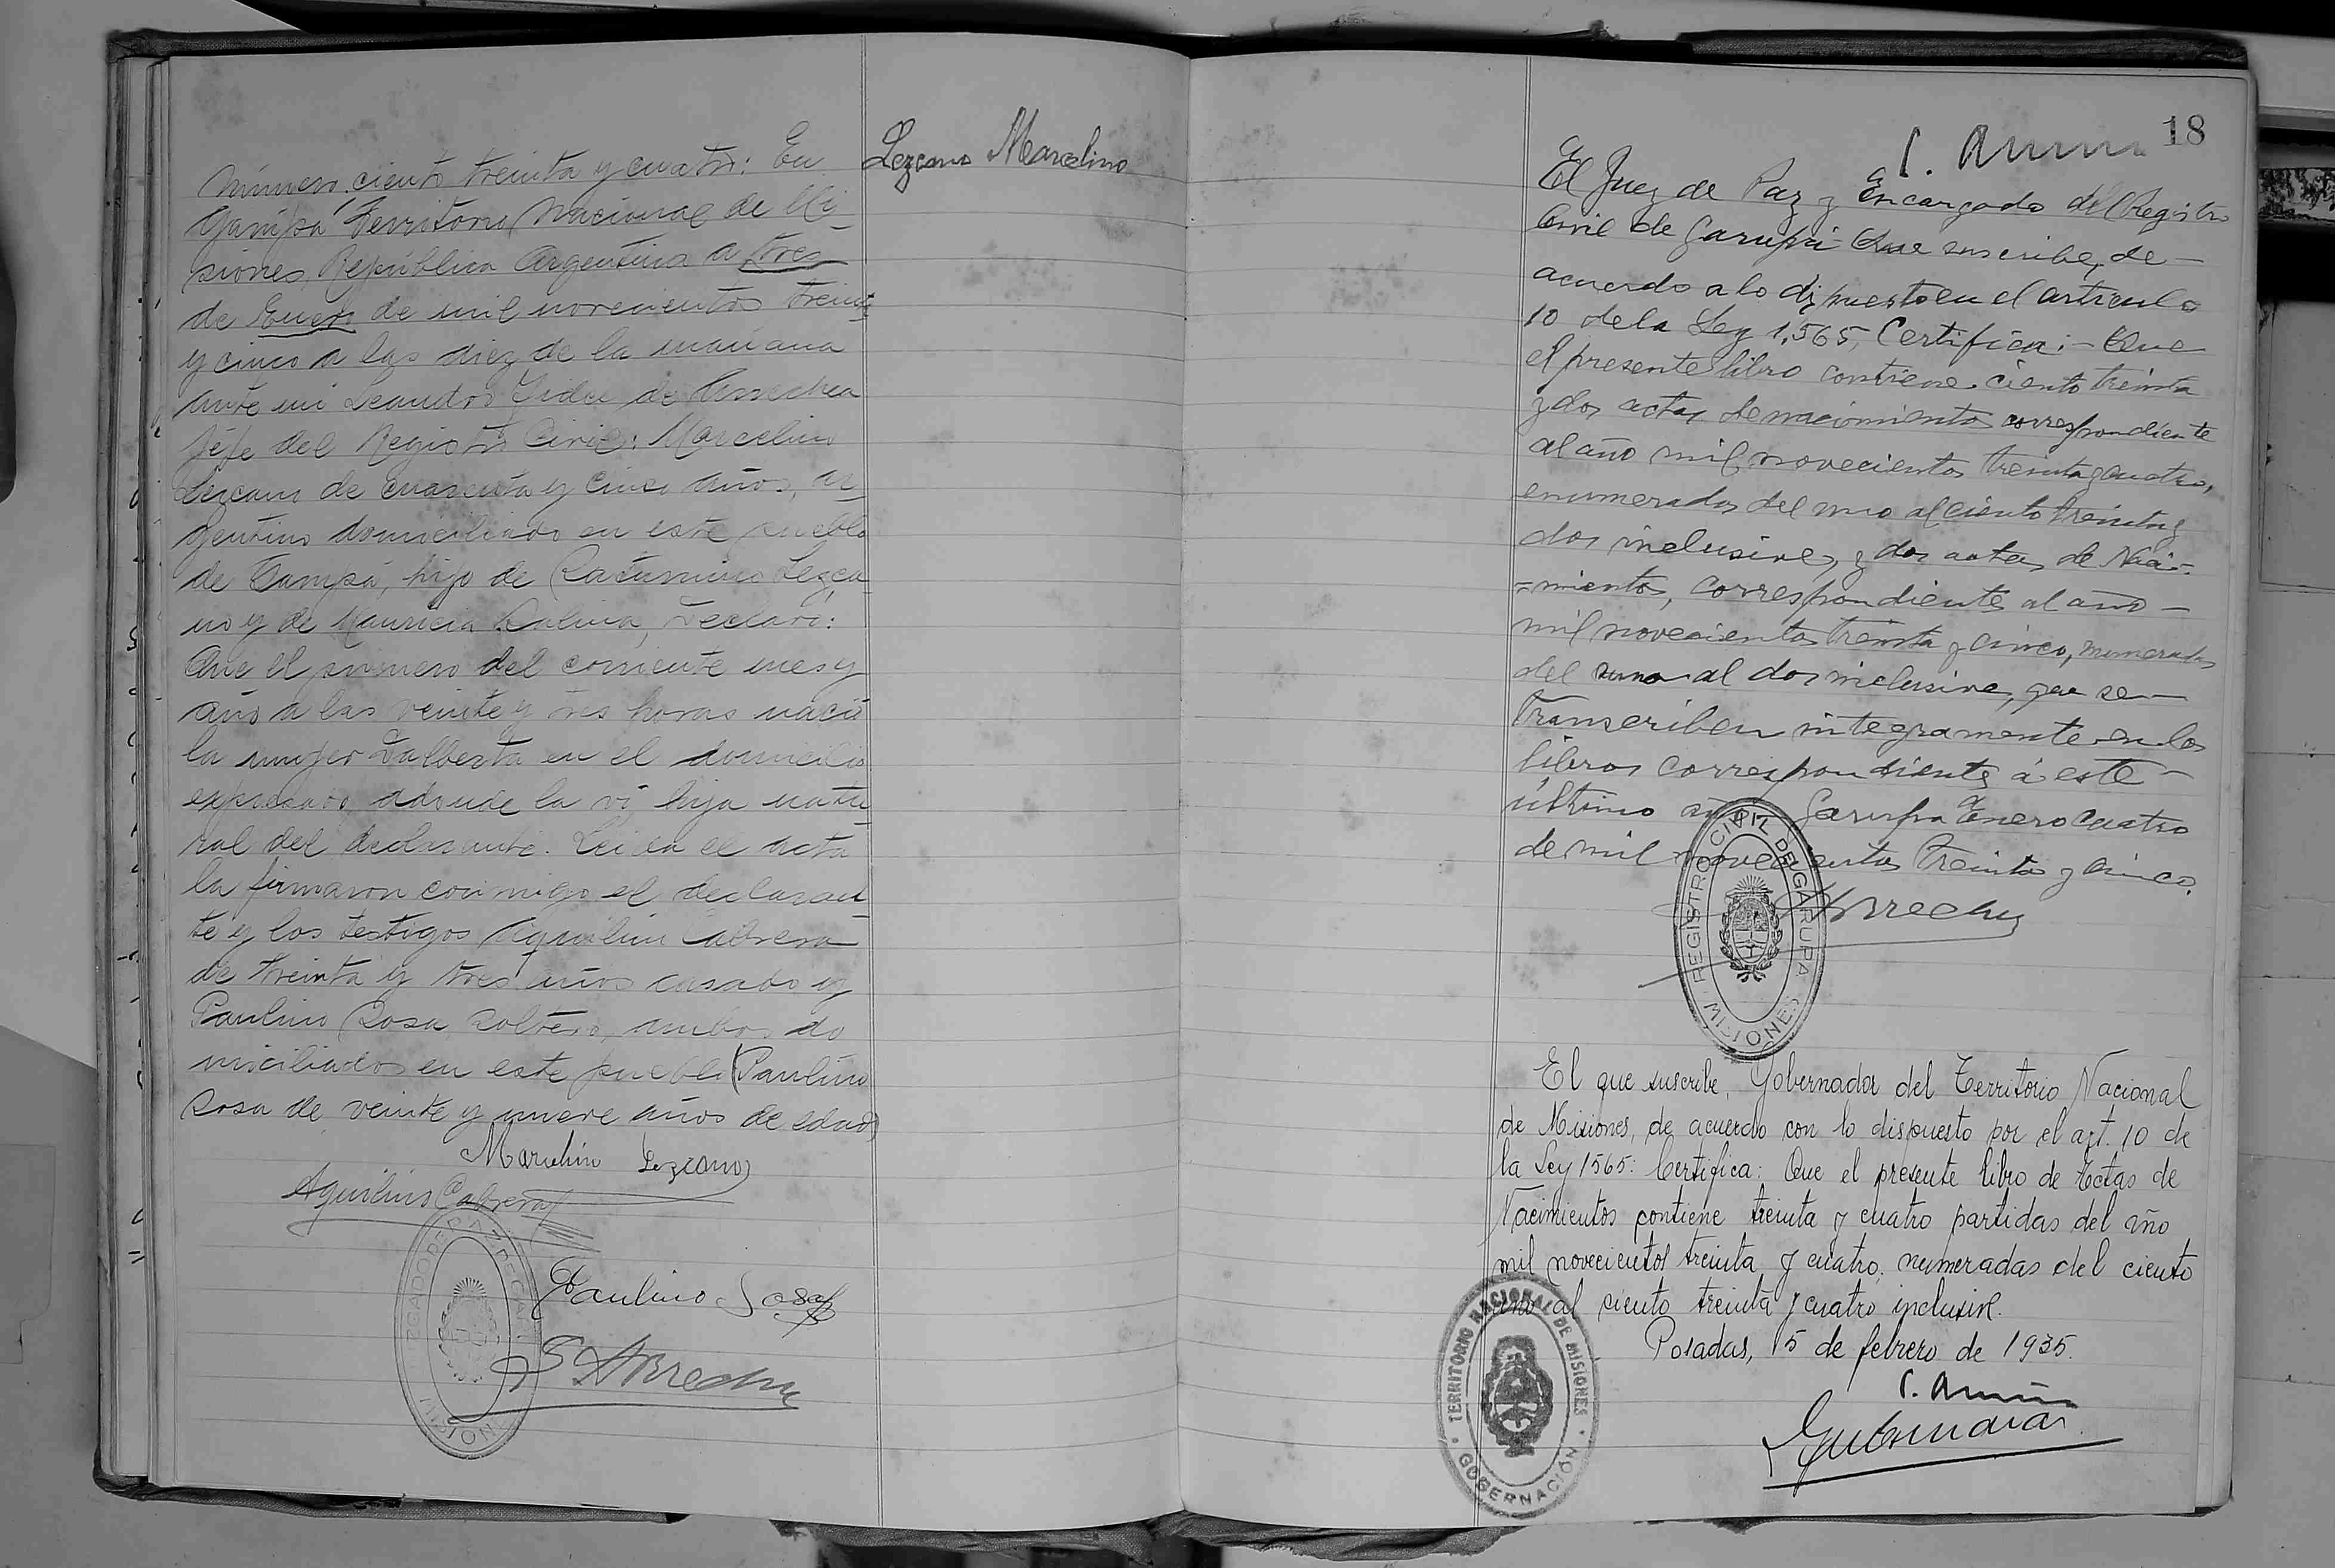 Número ciento treinta y cuatro: En
Garupá Territorio Nacional de Mi-
siones, República Argentina a tres
de Enero de mil novecientos treinta
y cinco a las diez de la mañana
ante mi Leandro de Arrechea
Jefe del Registro Civil: Marcelino
Lezcano de cuarenta y cinco años, ar-
gentino domiciliado en este pueblo
de Garupá, hijo de Saturnino Lezca-
no y de Mauricia, declaró:
Que el primero del corriente mes y
año a las veinte y tres horas nació
la mujer Dalberta en el domicilio
expresado, adonde la ví, hija natu-
ral del declarante. Leida el acta
la firmaron conmigo el declaran-
te y los testigos Aquilino Cabrera
de treinta y tres años casado y
Paulino Sosa soltero, ambos do
miciliados en este pueblo (Paulino
Sosa de veinte y nueve años de edad)
Marcelino Lezcano
Aquilino Cabrera
Paulino Sosa
Arrechea
JUZGADO DE PAZ DE GARUPA
MISIONES
Lezcano Marcelino
18
El Juez de Paz y Encargado del Registro
Civil de Garupá Que suscribe, de -
acuerdo a lo dispuesto en el artículo
10 de la Ley 1,565, Certifica: - Que
el presente libro contiene ciento treinta
y dos actas de nacimientos correspondiente
al año mil novecientos treinta y cuatro,
enumerados del uno al ciento treinta y
dos inclusive, y dos actas de Naci-
=mientos, correspondientes al año -
mil novecientos treinta y cinco, numerados
del uno al dos inclusive, que se -
transcriben integramente en los
libros correspondiente á este -
último año. Garupá Enero cuatro
de mil novecientos treinta y cinco.
Arrechea
REGISTRO CIVIL DE GARUPA
MISIONES
El que suscribe, Gobernador del Territorio Nacional
de Misiones, de acuerdo con lo dispuesto por el art. 10 de
la Ley 1565: Certifica: Que el presente libro de Actas de
Nacimientos contiene treinta y cuatro partidas del año
mil novecientos treinta y cuatro, numeradas del ciento
uno al ciento treinta y cuatro inclusive.
Posadas, 15 de febrero de 1935.
Gobernador
TERRITORIO NACIONAL DE MISIONES
GOBERNACIÓN